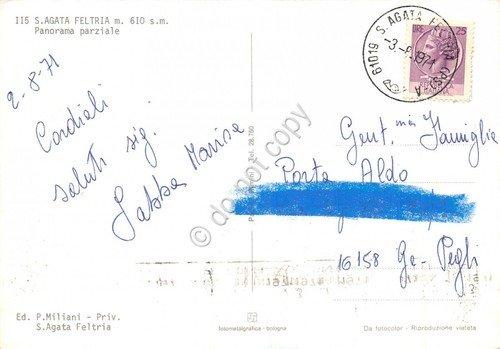 115 S.AGATA FELTRIA m. 610 s.m.
Panorama parziale
2-8-71
Cordiali
saluti sig.
Marisa
61019 S. AGATA FELTRIA (PS)
-3-8-1971
LIRE 25
Gent. mai Famiglia
Porta Aldo
16158 Ge-Pegli
do not copy
Ed. P.Miliani - Priv.
S.Agata Feltria
fotometalgrafica - bologna
Da fotocolor - Riproduzione vietata